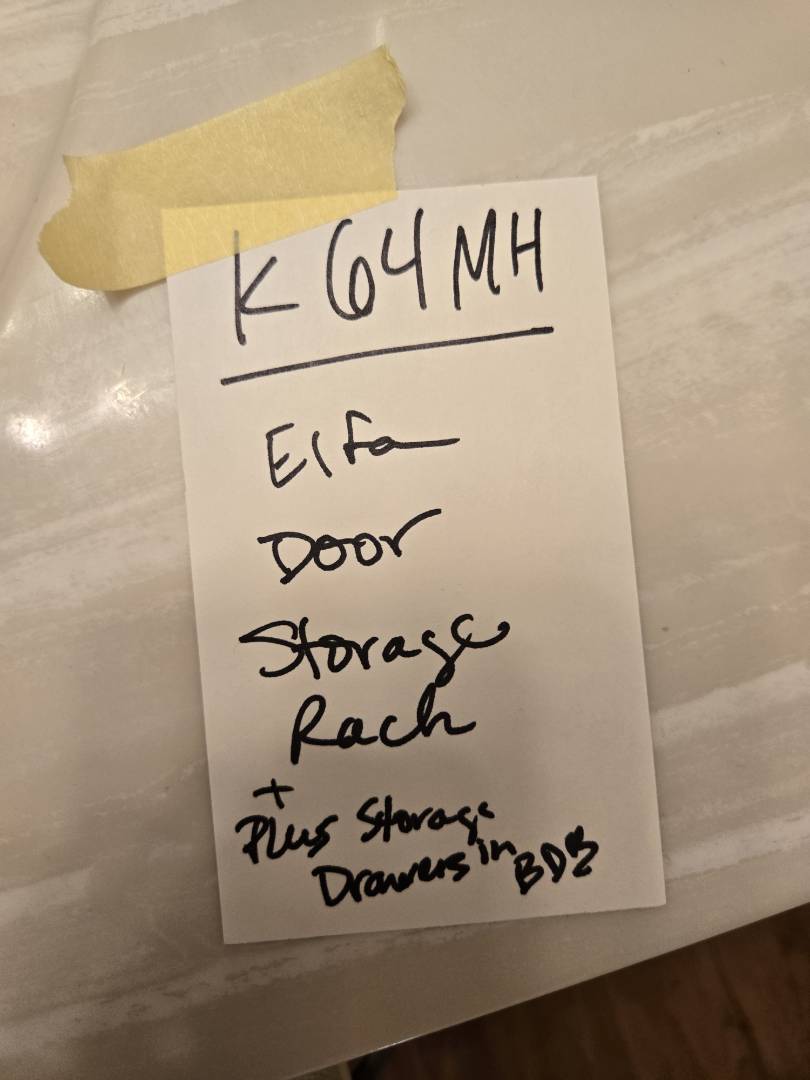 K64MH
Elfa
Door
Storage
Rack
+
Plus Storage
Drawers in